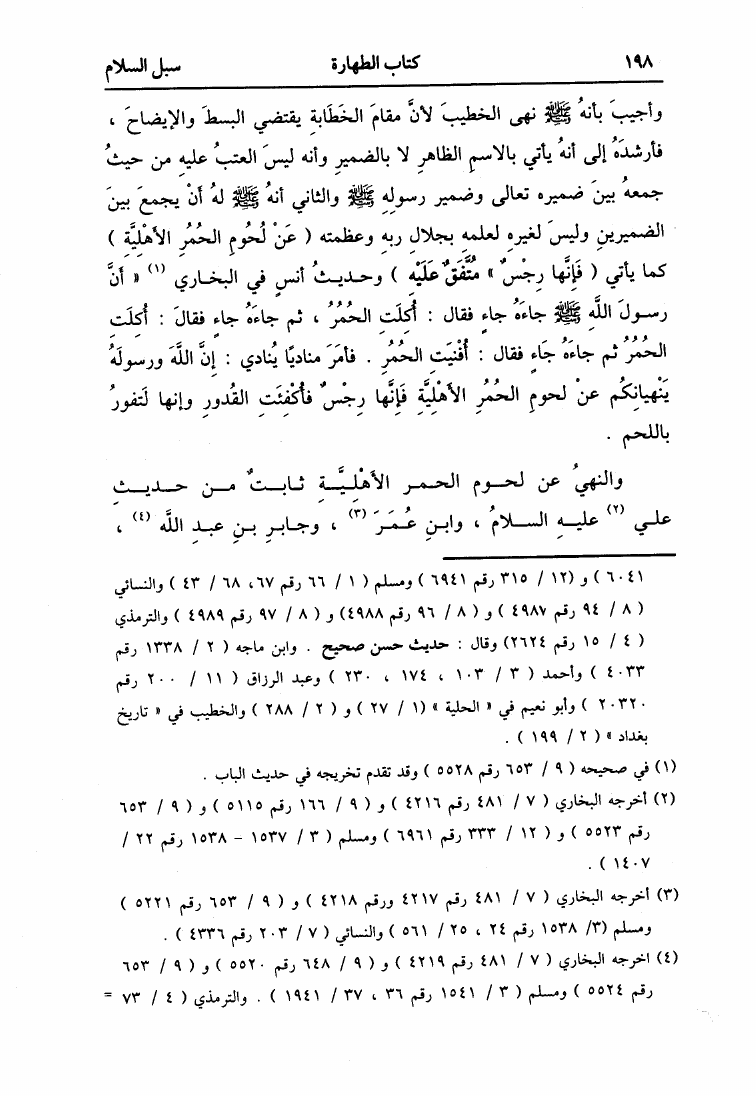 ١٩٨ كتاب الطهارة سبل السلام
وأجيبَ بأنهُ ﷺ نهى الخطيبَ لأنَّ مقامَ الخَطَابةِ يقتضي البسطَ والإيضاحَ ،
فأرشدَهُ إلى أنهُ يأتي بالاسمِ الظاهرِ لا بالضميرِ وأنه ليسَ العتبُ عليهِ من حيثُ
جمعهُ بينَ ضميره تعالى وضمير رسولهِ ﷺ والثاني أنهُ ﷺ لهُ أنْ يجمعَ بينَ
الضميرينِ وليسَ لغيرِه لعلمهِ بجلالِ ربهِ وعظمته ( عَنْ لُحُومِ الحُمُرِ الأَهْلِيَّةِ )
كما يأتي ( فَإِنَّها رِجْسٌ » مُتَّفَقٌ عَلَيْه ) وحديثُ أنسٍ في البخاري (١) « أنَّ
رسولَ اللَّهِ ﷺ جاءَهُ جاءٍ فقال : أُكِلَتِ الحُمُرُ ، ثم جاءَهُ جاءٍ فقالَ : أُكِلَتِ
الحُمُرُ ثم جاءَهُ جَاءٍ فقال : أُفْنِيَتِ الحُمُرِ . فأمَرَ مناديًا يُنادي : إنَّ اللَّهَ ورسولَهُ
يَنْهيانِكُم عنْ لحومِ الحُمُرِ الأهْليَّةِ فَإِنَّها رِجْسٌ فأُكْفِئَتِ القُدورِ وإنها لَتفورُ
باللحم .
والنهيُ عن لحوم الحمر الأهْلِيَّةِ ثابتٌ من حديثِ
علي (٢) عليهِ السلامُ ، وابنِ عُمَرَ (٣) ، وجابرِ بنِ عبدِ اللَّه (٤) ،
٦٠٤١ ) و (١٢ / ٣١٥ رقم ٦٩٤١ ) ومسلم ( ١ / ٦٦ رقم ٦٧، ٦٨ / ٤٣ ) والنسائي
( ٨ / ٩٤ رقم ٤٩٨٧ ) و ( ٨ / ٩٦ رقم ٤٩٨٨) و ( ٨ / ٩٧ رقم ٤٩٨٩ ) والترمذي
( ٤ / ١٥ رقم ٢٦٢٤) وقال : حديث حسن صحيح . وابن ماجه ( ٢ / ١٣٣٨ رقم
٤٠٣٣ ) وأحمد ( ٣ / ١٠٣ ، ١٧٤ ، ٢٣٠ ) وعبد الرزاق ( ١١ / ٢٠٠ رقم
٢٠٣٢٠ ) وأبو نعيم في « الحلية » (١ / ٢٧ ) و ( ٢ / ٢٨٨ ) والخطيب في « تاريخ
بغداد » ( ٢ / ١٩٩ ) .
(١) في صحيحه ( ٩ / ٦٥٣ رقم ٥٥٢٨ ) وقد تقدم تخريجه في حديث الباب .
(٢) أخرجه البخاري ( ٧ / ٤٨١ رقم ٤٢١٦ ) و ( ٩ / ١٦٦ رقم ٥١١٥ ) و ( ٩ / ٦٥٣
رقم ٥٥٢٣ ) و ( ١٢ / ٣٣٣ رقم ٦٩٦١ ) ومسلم ( ٣ / ١٥٣٧ - ١٥٣٨ رقم ٢٢ /
١٤٠٧ ) .
(٣) أخرجه البخاري ( ٧ / ٤٨١ رقم ٤٢١٧ ورقم ٤٢١٨ ) و ( ٩ / ٦٥٣ رقم ٥٢٢١ )
ومسلم (٣/ ١٥٣٨ رقم ٢٤ ، ٢٥ / ٥٦١ ) والنسائي ( ٧ / ٢٠٣ رقم ٤٣٣٦ ) .
(٤) اخرجه البخاري ( ٧ / ٤٨١ رقم ٤٢١٩ ) و ( ٩ / ٦٤٨ رقم ٥٥٢٠ ) و ( ٩ / ٦٥٣
رقم ٥٥٢٤ ) ومسلم ( ٣ / ١٥٤١ رقم ٣٦ ، ٣٧ / ١٩٤١ ) . والترمذي ( ٤ / ٧٣ =